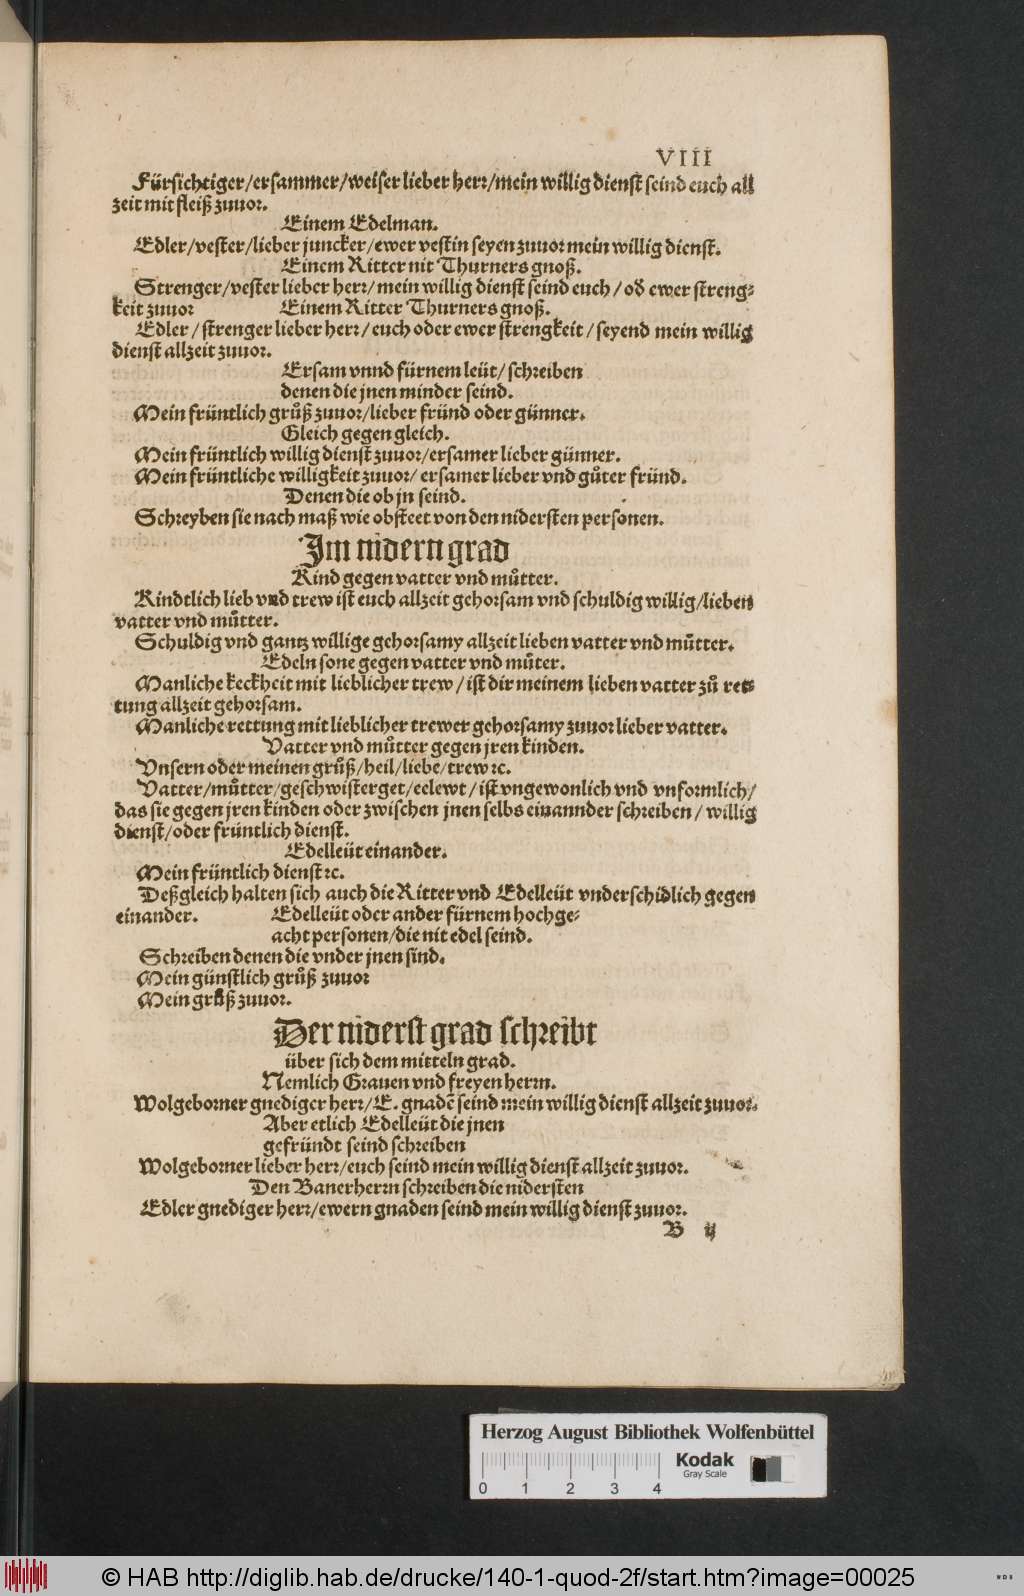 VIII
Fürsichtiger/ersammer/weiser lieber herr/mein willig dienst seind euch all
zeit mit fleiß zuuor.
Einem Edelman.
Edler/vester/lieber juncker/ewer vestin seyen zuuor mein willig dienst.
Einem Ritter nit Thurners gnoß.
Strenger/vester lieber herr/mein willig dienst seind euch/od ewer streng-
keit zuuor Einem Ritter Thurners gnoß.
Edler/strenger lieber herr/euch oder ewer strengkeit/seyend mein willig
dienst allzeit zuuor.
Ersam vnnd fürnem leüt/schreiben
denen die jnen minder seind.
Mein früntlich gruͦß zuuor/lieber fründ oder günner.
Gleich gegen gleich.
Mein früntlich willig dienst zuuor/ersamer lieber günner.
Mein früntliche willigkeit zuuor/ersamer lieber vnd guͦter fründ.
Denen die ob jn seind.
Schreyben sie nach maß wie obsteet von den nidersten personen.
Im nidern grad
Kind gegen vatter vnd muͦtter.
Kindtlich lieb vnd trew ist euch allzeit gehorsam vnd schuldig willig/lieben
vatter vnd muͦtter.
Schuldig vnd gantz willige gehorsamy allzeit lieben vatter vnd muͦtter.
Edeln sone gegen vatter vnd muͦter.
Manliche keckheit mit lieblicher trew/ist dir meinem lieben vatter zuͦ ret-
tung allzeit gehorsam.
Manliche rettung mit lieblicher trewer gehorsamy zuuor lieber vatter.
Vatter vnd muͦtter gegen jren kinden.
Vnsern oder meinen gruͦß/heil/liebe/trew ꝛc.
Vatter/muͦtter/geschwisterget/eelewt/ist vngewonlich vnd vnformlich/
das sie gegen jren kinden oder zwischen jnen selbs einannder schreiben/willig
dienst/oder früntlich dienst.
Edelleüt einander.
Mein früntlich dienst ꝛc.
Deßgleich halten sich auch die Ritter vnd Edelleüt vnderschidlich gegen
einander. Edelleüt oder ander fürnem hochge-
acht personen/die nit edel seind.
Schreiben denen die vnder jnen sind.
Mein günstlich gruͦß zuuor
Mein gruͦß zuuor.
Der niderst grad schreibt
über sich dem mitteln grad.
Nemlich Grauen vnd freyen herrn.
Wolgeborner gnediger herr/E. gnadē seind mein willig dienst allzeit zuuor.
Aber etlich Edelleüt die jnen
gefründt seind schreiben
Wolgeborner lieber herr/euch seind mein willig dienst allzeit zuuor.
Den Banerherrn schreiben die nidersten
Edler gnediger herr/ewern gnaden seind mein willig dienst zuuor.
B ij
Herzog August Bibliothek Wolfenbüttel
Kodak
Gray Scale
0 1 2 3 4
© HAB http://diglib.hab.de/drucke/140-1-quod-2f/start.htm?image=00025